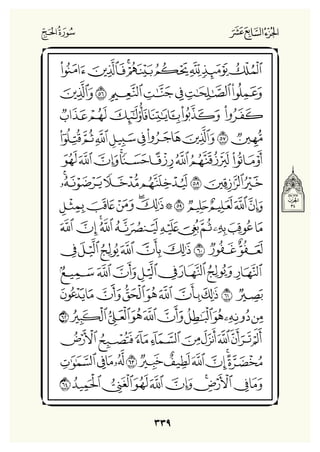 سُورَةُ الحَجِّ
الجُزْءُ السَّابِعَ عَشَرَ
ٱلْمُلْكُ يَوْمَئِذٍ لِّلَّهِ يَحْكُمُ بَيْنَهُمْ ۚ فَٱلَّذِينَ ءَامَنُوا۟
وَعَمِلُوا۟ ٱلصَّـٰلِحَـٰتِ فِى جَنَّـٰتِ ٱلنَّعِيمِ ٥٦ وَٱلَّذِينَ
كَفَرُوا۟ وَكَذَّبُوا۟ بِـَٔايَـٰتِنَا فَأُو۟لَـٰٓئِكَ لَهُمْ عَذَابٌ
مُّهِينٌ ٥٧ وَٱلَّذِينَ هَاجَرُوا۟ فِى سَبِيلِ ٱللَّهِ ثُمَّ قُتِلُوٓا۟
أَوْ مَاتُوا۟ لَيَرْزُقَنَّهُمُ ٱللَّهُ رِزْقًا حَسَنًا ۚ وَإِنَّ ٱللَّهَ لَهُوَ
خَيْرُ ٱلرَّٰزِقِينَ ٥٨ لَيُدْخِلَنَّهُم مُّدْخَلًا يَرْضَوْنَهُۥ ۗ
وَإِنَّ ٱللَّهَ لَعَلِيمٌ حَلِيمٌ ٥٩ ۞ ذَٰلِكَ ۖ وَمَنْ عَاقَبَ بِمِثْلِ
مَا عُوقِبَ بِهِۦ ثُمَّ بُغِىَ عَلَيْهِ لَيَنصُرَنَّهُ ٱللَّهُ ۗ إِنَّ ٱللَّهَ
لَعَفُوٌّ غَفُورٌ ٦٠ ذَٰلِكَ بِأَنَّ ٱللَّهَ يُولِجُ ٱلَّيْلَ فِى
ٱلنَّهَارِ وَيُولِجُ ٱلنَّهَارَ فِى ٱلَّيْلِ وَأَنَّ ٱللَّهَ سَمِيعٌۢ
بَصِيرٌ ٦١ ذَٰلِكَ بِأَنَّ ٱللَّهَ هُوَ ٱلْحَقُّ وَأَنَّ مَا يَدْعُونَ
مِن دُونِهِۦ هُوَ ٱلْبَـٰطِلُ وَأَنَّ ٱللَّهَ هُوَ ٱلْعَلِىُّ ٱلْكَبِيرُ ٦٢
أَلَمْ تَرَ أَنَّ ٱللَّهَ أَنزَلَ مِنَ ٱلسَّمَآءِ مَآءً فَتُصْبِحُ ٱلْأَرْضُ
مُخْضَرَّةً ۗ إِنَّ ٱللَّهَ لَطِيفٌ خَبِيرٌ ٦٣ لَّهُۥ مَا فِى ٱلسَّمَـٰوَٰتِ
وَمَا فِى ٱلْأَرْضِ ۗ وَإِنَّ ٱللَّهَ لَهُوَ ٱلْغَنِىُّ ٱلْحَمِيدُ ٦٤
٣٣٩